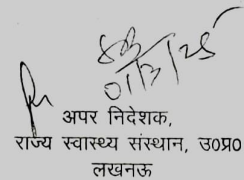 01/7/25
अपर निदेशक,
राज्य स्वास्थ्य संस्थान, उ0प्र0
लखनऊ